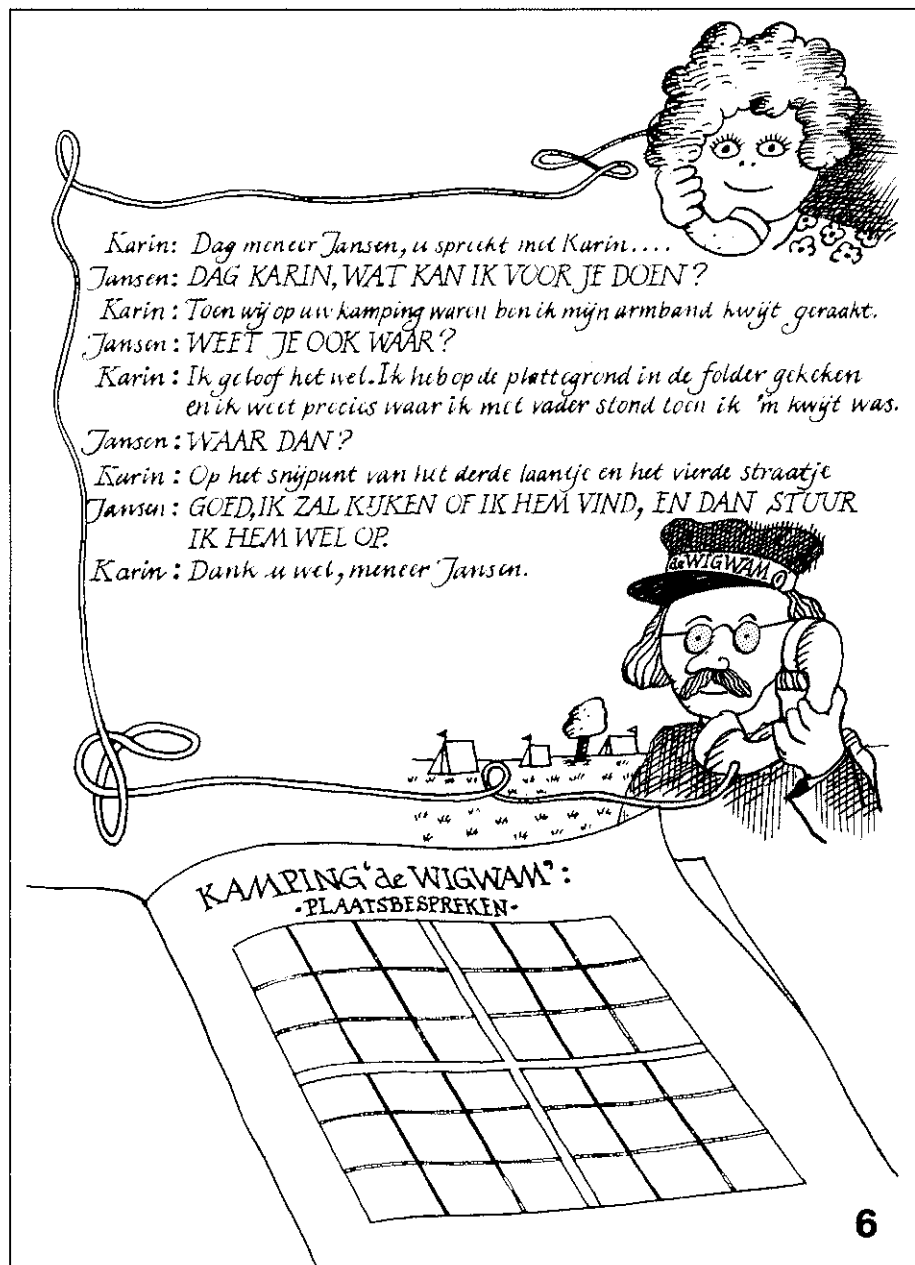 Karin: Dag meneer Jansen, u spreekt met Karin....
Jansen: DAG KARIN, WAT KAN IK VOOR JE DOEN?
Karin: Toen wij op uw kamping waren ben ik mijn armband kwijt geraakt.
Jansen: WEET JE OOK WAAR?
Karin: Ik geloof het wel. Ik heb op de plattegrond in de folder gekeken
en ik weet precies waar ik met vader stond toen ik 'm kwijt was.
Jansen: WAAR DAN?
Karin: Op het snijpunt van het derde laantje en het vierde straatje
Jansen: GOED, IK ZAL KIJKEN OF IK HEM VIND, EN DAN STUUR
IK HEM WEL OP.
Karin: Dank u wel, meneer Jansen.
de WIGWAM
KAMPING 'de WIGWAM':
-PLAATSBESPREKEN-
6